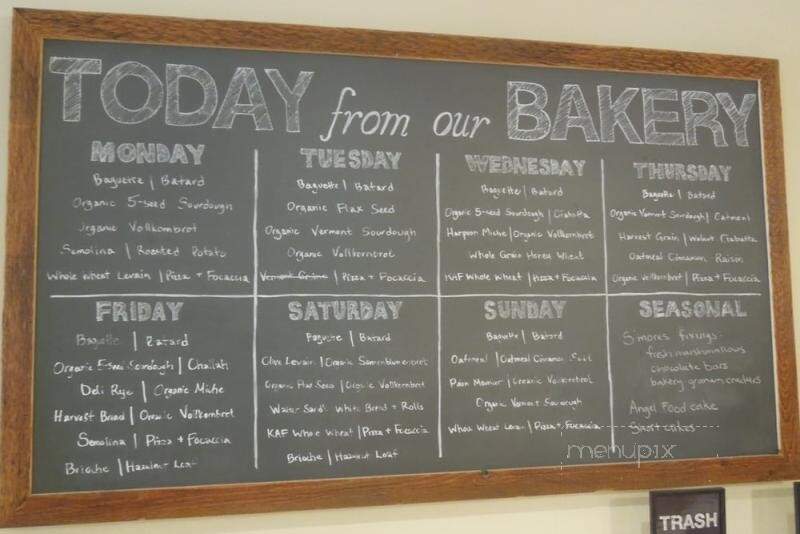 TODAY from our BAKERY
MONDAY
Baguette | Batard
Organic 5-seed Sourdough
Organic Vollkornbrot
Semolina | Roasted Potato
Whole Wheat Levain | Pizza + Focaccia
TUESDAY
Baguette | Batard
Organic Flax Seed
Organic Vermont Sourdough
Organic Vollkornbrot
Vermont Grains | Pizza + Focaccia
WEDNESDAY
Baguette | Batard
Organic 5-seed Sourdough | Ciabatta
Harpoon Miche | Organic Vollkornbrot
Whole Grain Honey Wheat
KAF Whole Wheat | Pizza + Focaccia
THURSDAY
Baguette | Batard
Organic Vermont Sourdough | Oatmeal
Harvest Grain | Walnut Ciabatta
Oatmeal Cinnamon Raisin
Organic Vollkornbrot | Pizza + Focaccia
FRIDAY
Baguette | Batard
Organic 5-Seed Sourdough | Challah
Deli Rye | Organic Miche
Harvest Bread | Organic Vollkornbrot
Semolina | Pizza + Focaccia
Brioche | Hazelnut Loaf
SATURDAY
Baguette | Batard
Olive Levain | Organic
Organic Flax Seed | Organic Vollkornbrot
White Bread + Rolls
KAF Whole Wheat | Pizza + Focaccia
Brioche | Hazelnut Loaf
SUNDAY
Baguette | Batard
Oatmeal | Oatmeal Cinnamon
Pain | Organic Vollkornbrot
Organic Vermont Sourdough
Whole Wheat Levain | Pizza + Focaccia
SEASONAL
S'mores fixings:
fresh marshmallows
chocolate bars
bakery graham crackers
Angel Food cake
Short cakes
menupix
TRASH